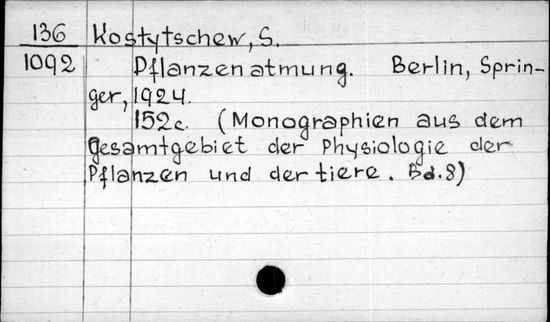 136 Kostytschew, S.
1092 Pflanzenatmung. Berlin, Sprin-
ger, 1924.
152c. (Monographien aus dem
Gesamtgebiet der Physiologie der
Pflanzen und der tiere. Bd. 8)